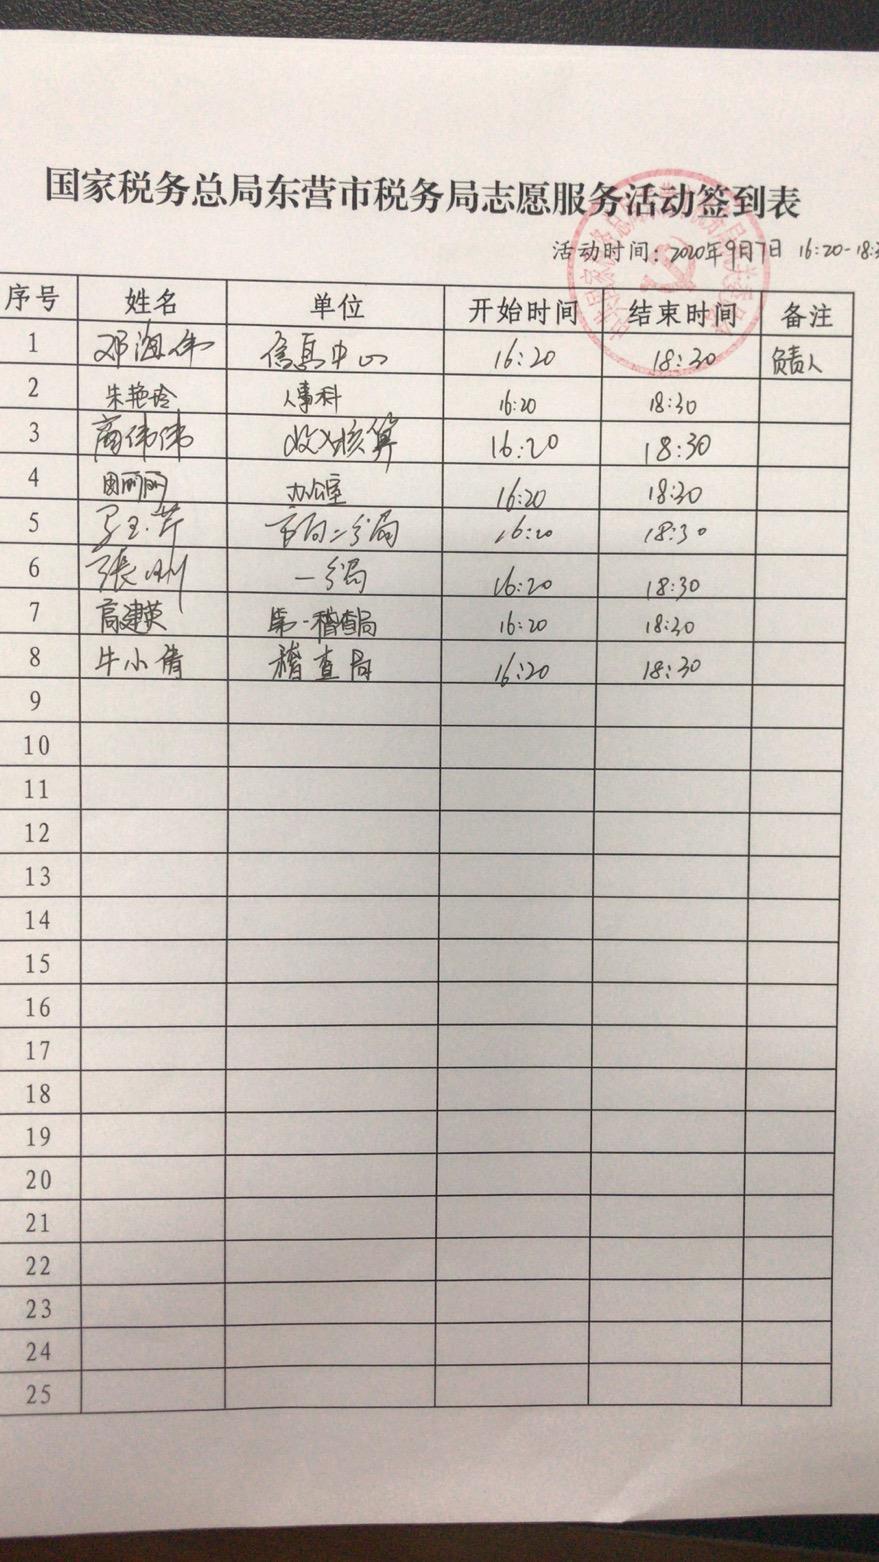 国家税务总局东营市税务局志愿服务活动签到表
活动时间：2020年9月7日 16:20-18:3
序号 姓名 单位 开始时间 结束时间 备注
1 邓海伟 信息中心 16:20 18:30 负责人
2 朱艳玲 人事科 16:20 18:30
3 商伟伟 收入核算 16:20 18:30
4 田丽丽 办公室 16:20 18:30
5 16:20 18:30
6 张刚 一分局 16:20 18:30
7 高建英 第一稽查局 16:20 18:30
8 牛小倩 稽查局 16:20 18:30
9
10
11
12
13
14
15
16
17
18
19
20
21
22
23
24
25